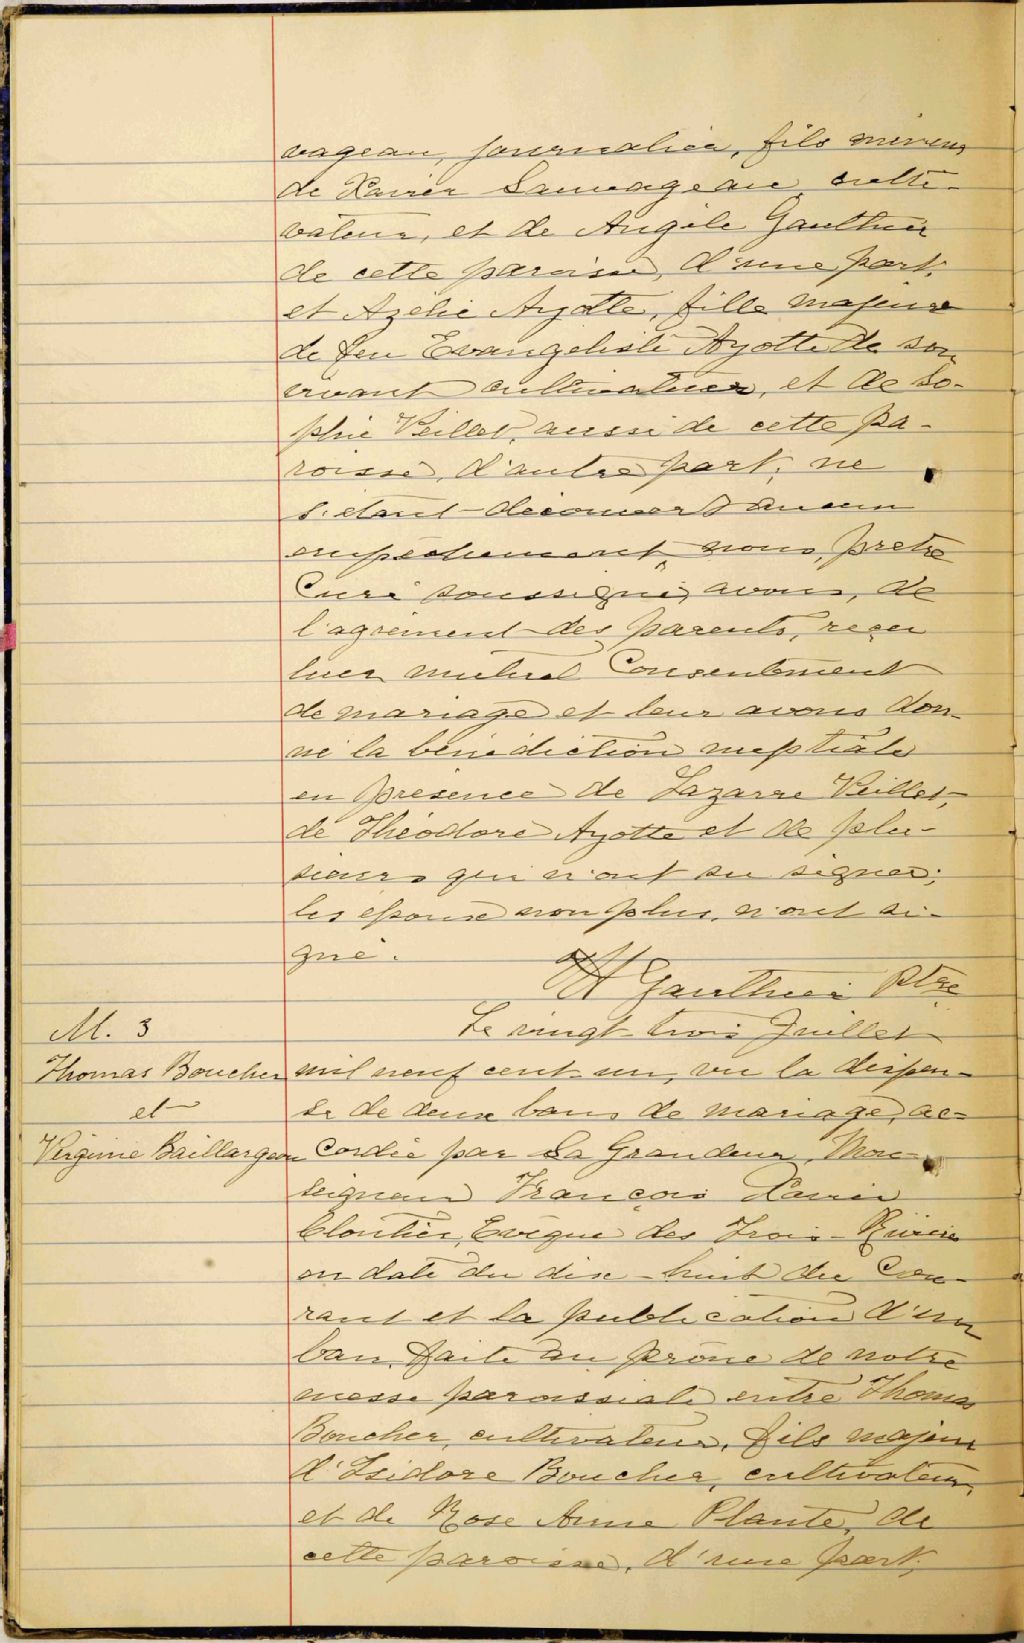 vageau, journalier, fils mineur
de Xavier Sauvageau, culti-
vateur, et de Angèle Gauthier
de cette paroisse, d'une part,
et Azélie Ayotte, fille majeure
de feu Evangeliste Ayotte de son
vivant cultivateur, et de So-
phie Veillet, aussi de cette pa-
roisse, d'autre part; ne
s'étant découvert aucun
empêchement, nous, prêtre
Curé soussigné, avons, de
l'agrément des parents, reçu
leur mutuel Consentement
de mariage et leur avons don-
né la bénédiction nuptiale
en présence de Lazarre Veillet,
de Théodore Ayotte et de plu-
sieurs qui n'ont su signer;
les époux non plus, n'ont si-
gné.
Gauthier Ptre
M. 3
Thomas Boucher
et
Virginie Baillargeon
Le vingt trois Juillet
mil neuf cent un, vu la dispen-
se de deux bans de mariage, ac-
cordée par Sa Grandeur, Mon-
seigneur François Xavier
Cloutier, Evêque des Trois-Rivières
en date du dix-huit du Cou-
rant et la publication d'un
ban, faite au prône de notre
messe paroissiale entre Thomas
Boucher, cultivateur, fils majeur
d'Isidore Boucher, cultivateur,
et de Rose Anne Plante, de
cette paroisse, d'une part,